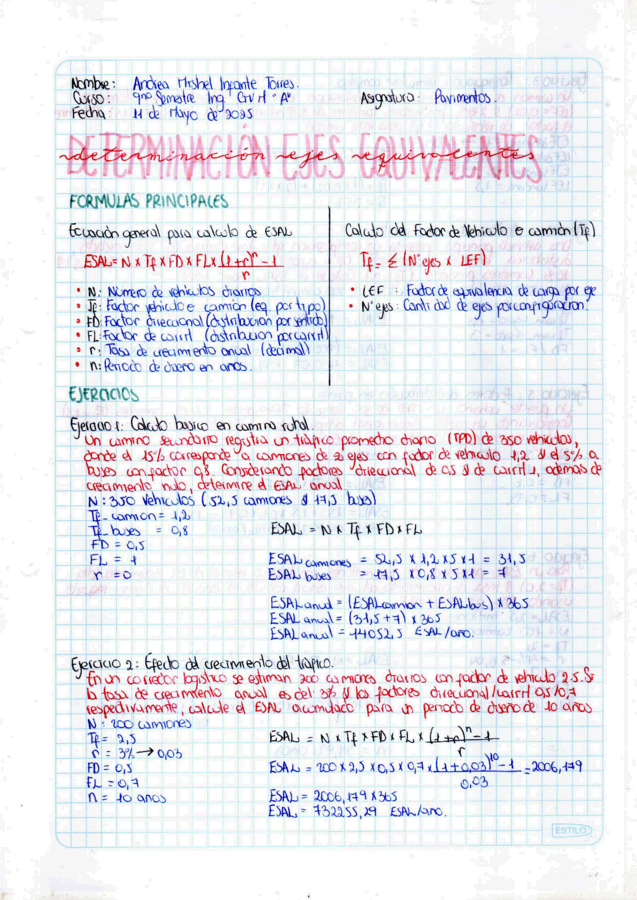 Nombre: Andrea Mishel Infante Torres.
Curso: 9no Semestre Ing. Civil "A" Asignatura: Pavimentos.
Fecha: 11 de Mayo de 2025
DETERMINACIÓN EJES EQUIVALENTES
determinación ejes equivalentes
FORMULAS PRINCIPALES
Ecuación general para calculo de ESAL
ESAL = N x Tf x FD x FL x (1+r)^n - 1 / r
• N: Número de vehículos diarios
• Tf: Factor vehículo e camión (eq. por tipo)
• FD: Factor direccional (distribucion por sentido)
• FL: Factor de carril (distribucion por carril)
• r: Tasa de crecimiento anual (decimal)
• n: Periodo de diseño en años.
Calculo del Factor de Vehiculo o camión (Tf)
Tf = Σ (N° ejes x LEF)
• LEF : Factor de equivalencia de carga por eje
• N° ejes: Cantidad de ejes por configuración.
EJERCICIOS
Ejercicio 1: Calculo basico en camino rural.
Un camino secundario registra un tráfico promedio diario (TPD) de 350 vehiculos,
donde el 15% corresponde a camiones de 2 ejes con factor de vehiculo 1,2 y el 5% a
buses con factor 0,8. Considerando factores direccional de 0,5 y de carril 1, ademas de
crecimiento nulo, determine el ESAL anual.
N: 350 Vehículos (52,5 camiones y 17,5 buses)
Tf- camion = 1,2
Tf- buses = 0,8 ESAL = N x Tf x FD x FL
FD = 0,5
FL = 1 ESAL camiones = 52,5 x 1,2 x 5 x 1 = 31,5
r = 0 ESAL buses = 17,5 x 0,8 x 5 x 1 = 7
ESAL anual = (ESAL camion + ESAL bus) x 365
ESAL anual = (31,5 + 7) x 365
ESAL anual = 14052,5 ESAL/año.
Ejercicio 2: Efecto del crecimiento del tráfico.
En un corredor logistico se estiman 200 camiones diarios con factor de vehiculo 2.5. Si
la tasa de crecimiento anual es del 3% y los factores direccional/carril 0,5/0,7
respectivamente, calcule el ESAL acumulado para un periodo de diseño de 10 años
N: 200 camiones
Tf = 2,5 ESAL = N x Tf x FD x FL x (1+r)^n - 1 / r
r = 3% → 0,03
FD = 0,5 ESAL = 200 x 2,5 x 0,5 x 0,7 x (1+0,03)^10 - 1 / 0,03 = 2006,179
FL = 0,7
n = 10 años ESAL = 2006,179 x 365
ESAL = 732255,29 ESAL/año.
ESTILO